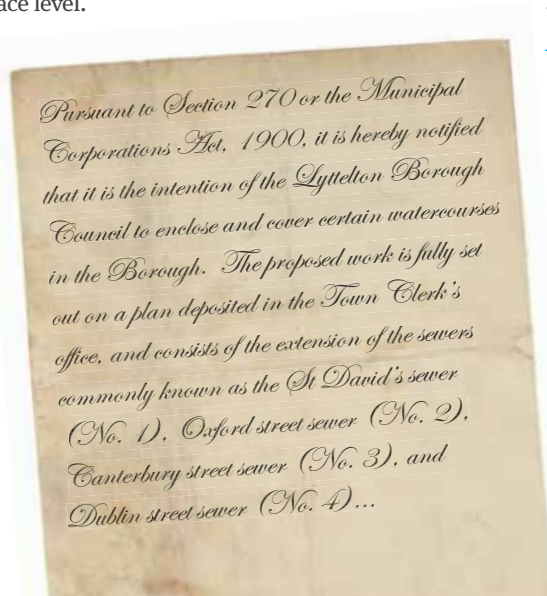 ace level.
Pursuant to Section 270 or the Municipal
Corporations Act, 1900, it is hereby notified
that it is the intention of the Lyttelton Borough
Council to enclose and cover certain watercourses
in the Borough. The proposed work is fully set
out on a plan deposited in the Town Clerk's
office, and consists of the extension of the sewers
commonly known as the St David's sewer
(No. 1), Oxford street sewer (No. 2),
Canterbury street sewer (No. 3), and
Dublin street sewer (No. 4)...